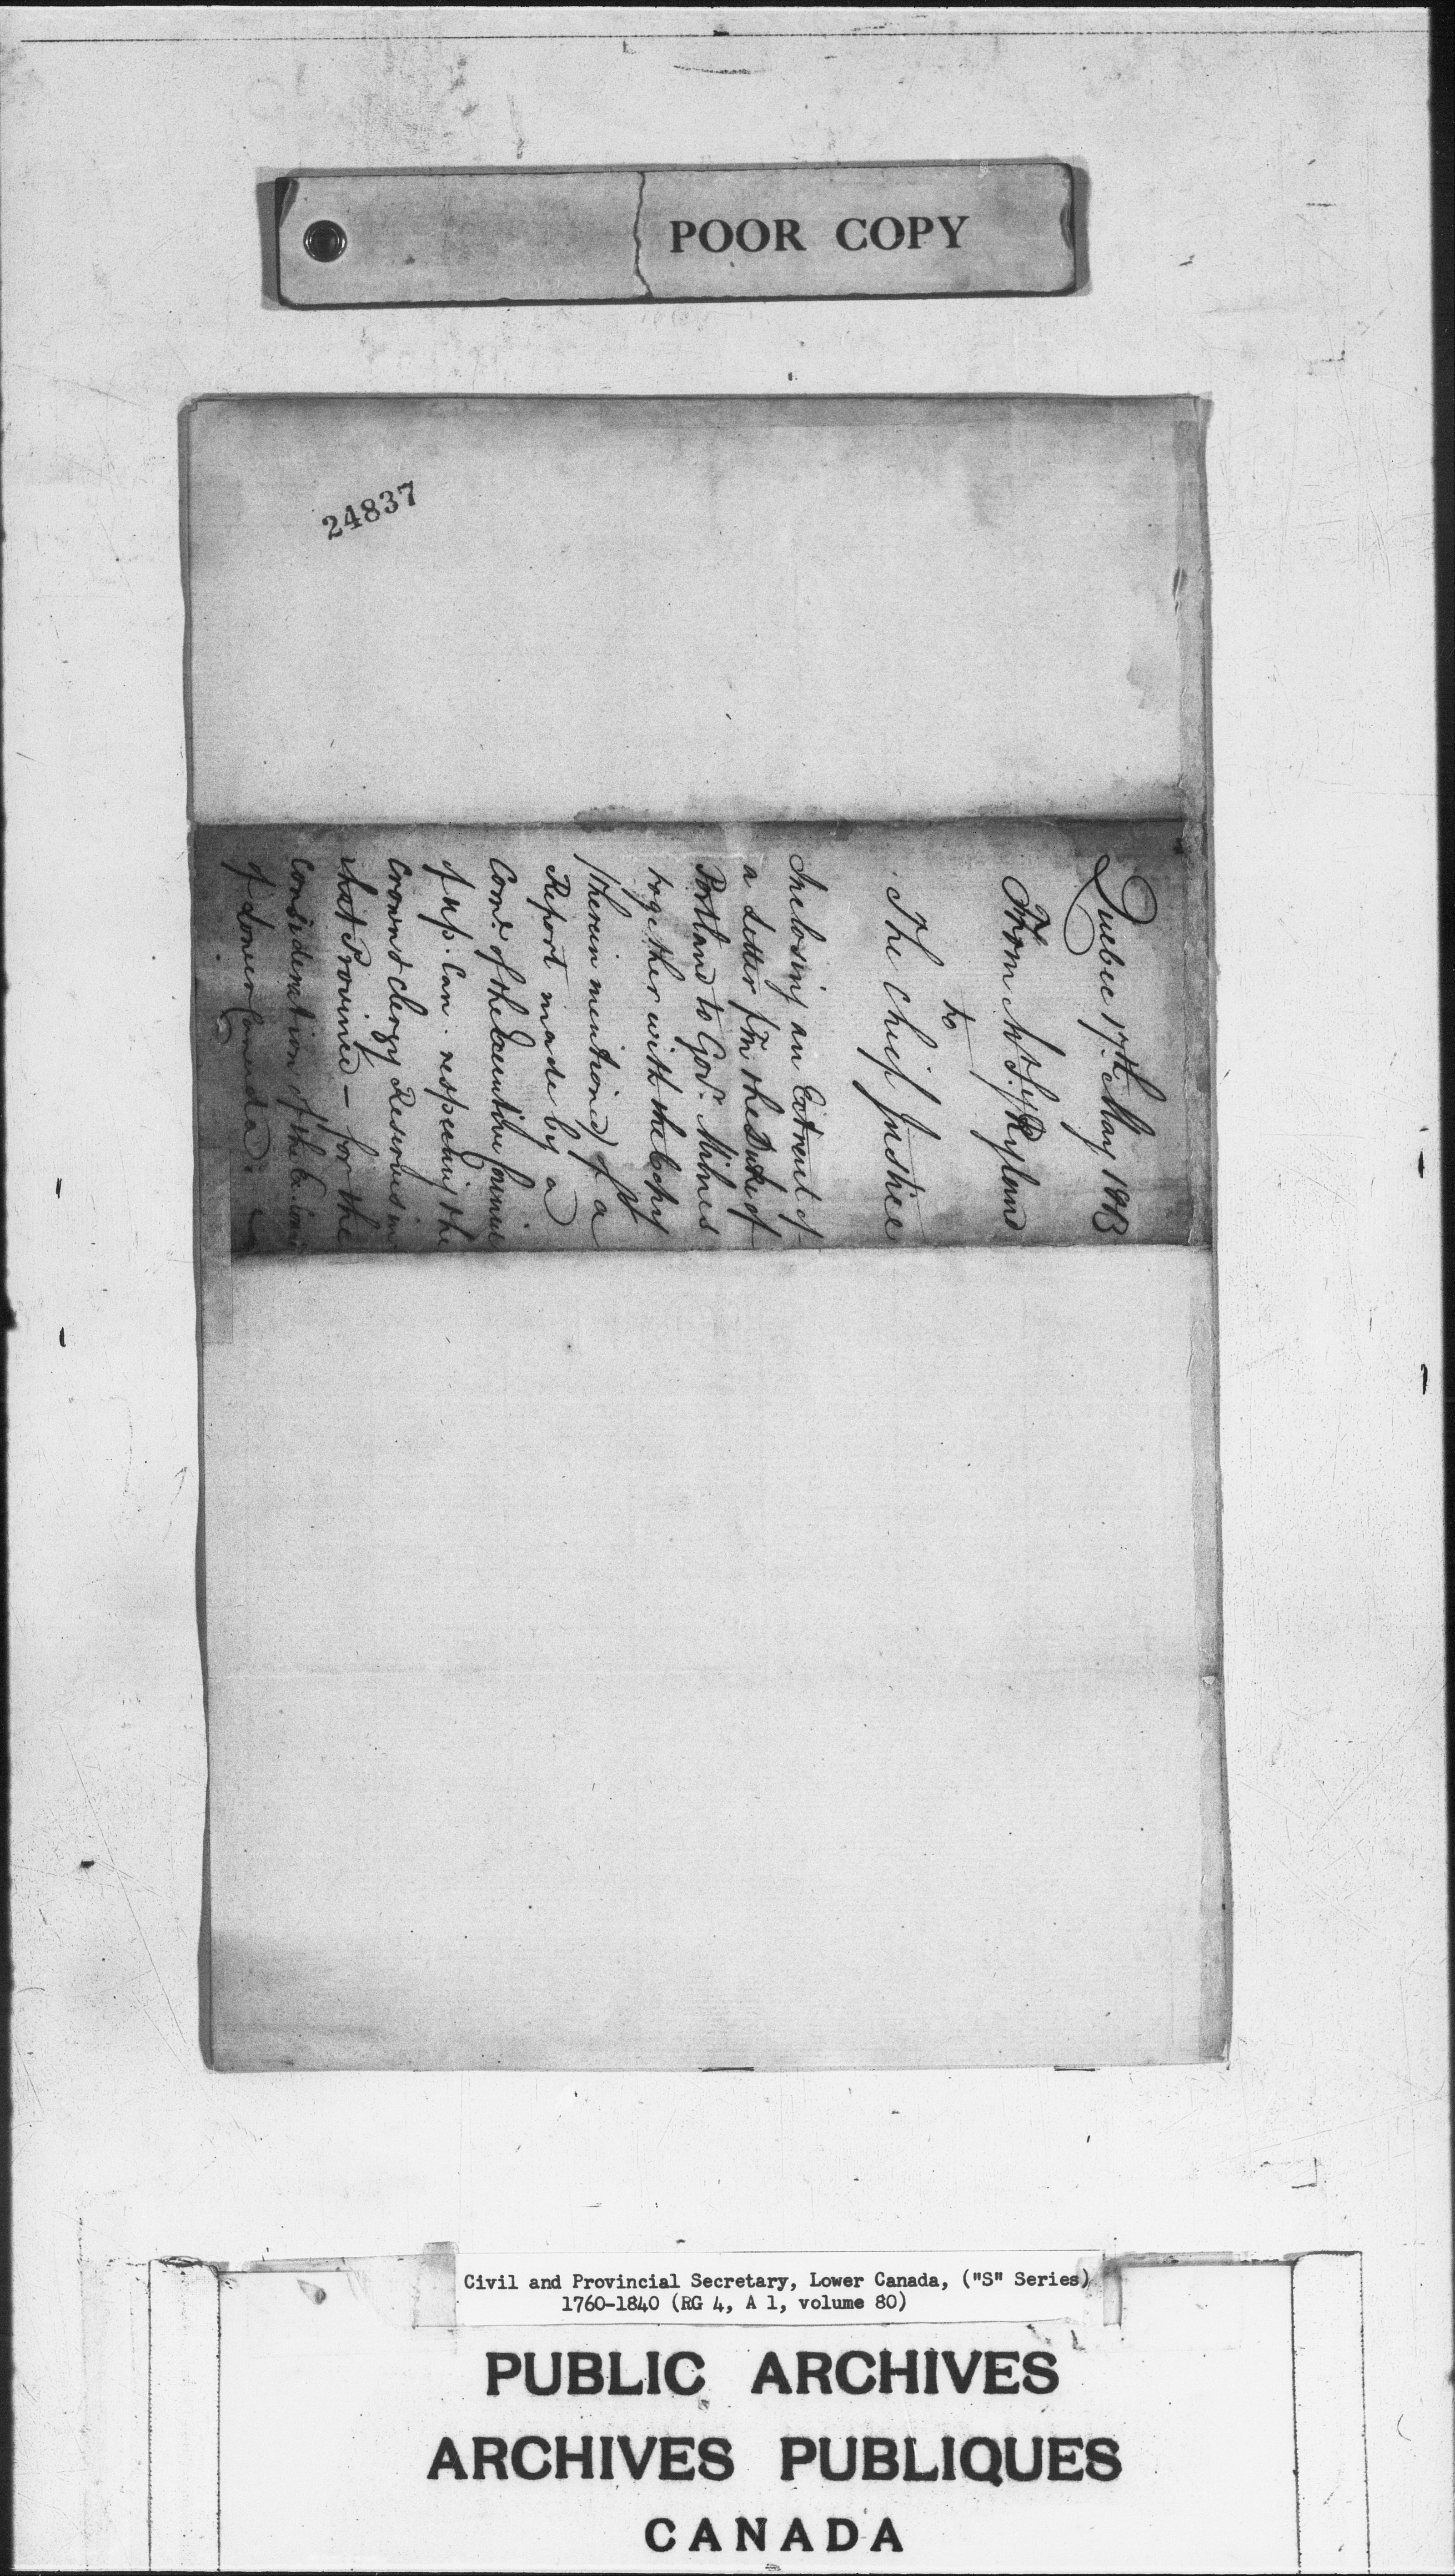 POOR COPY
24837
Quebec 17th May 1803
From H. Ryland
to
The Chief Justice
Inclosing an Extract of
a Letter fm the Duke of
Portland to Govr. Milnes
together with the Copy
(therein mentioned) of a
Report made by a
Come. of the Executive Council
of Up. Can. respecting the
Crown & Clergy Reserves in
that Province — for the
Consideration of the
of Lower Canada.
Civil and Provincial Secretary, Lower Canada, ("S" Series)
1760-1840 (RG 4, A 1, volume 80)
PUBLIC ARCHIVES
ARCHIVES PUBLIQUES
CANADA